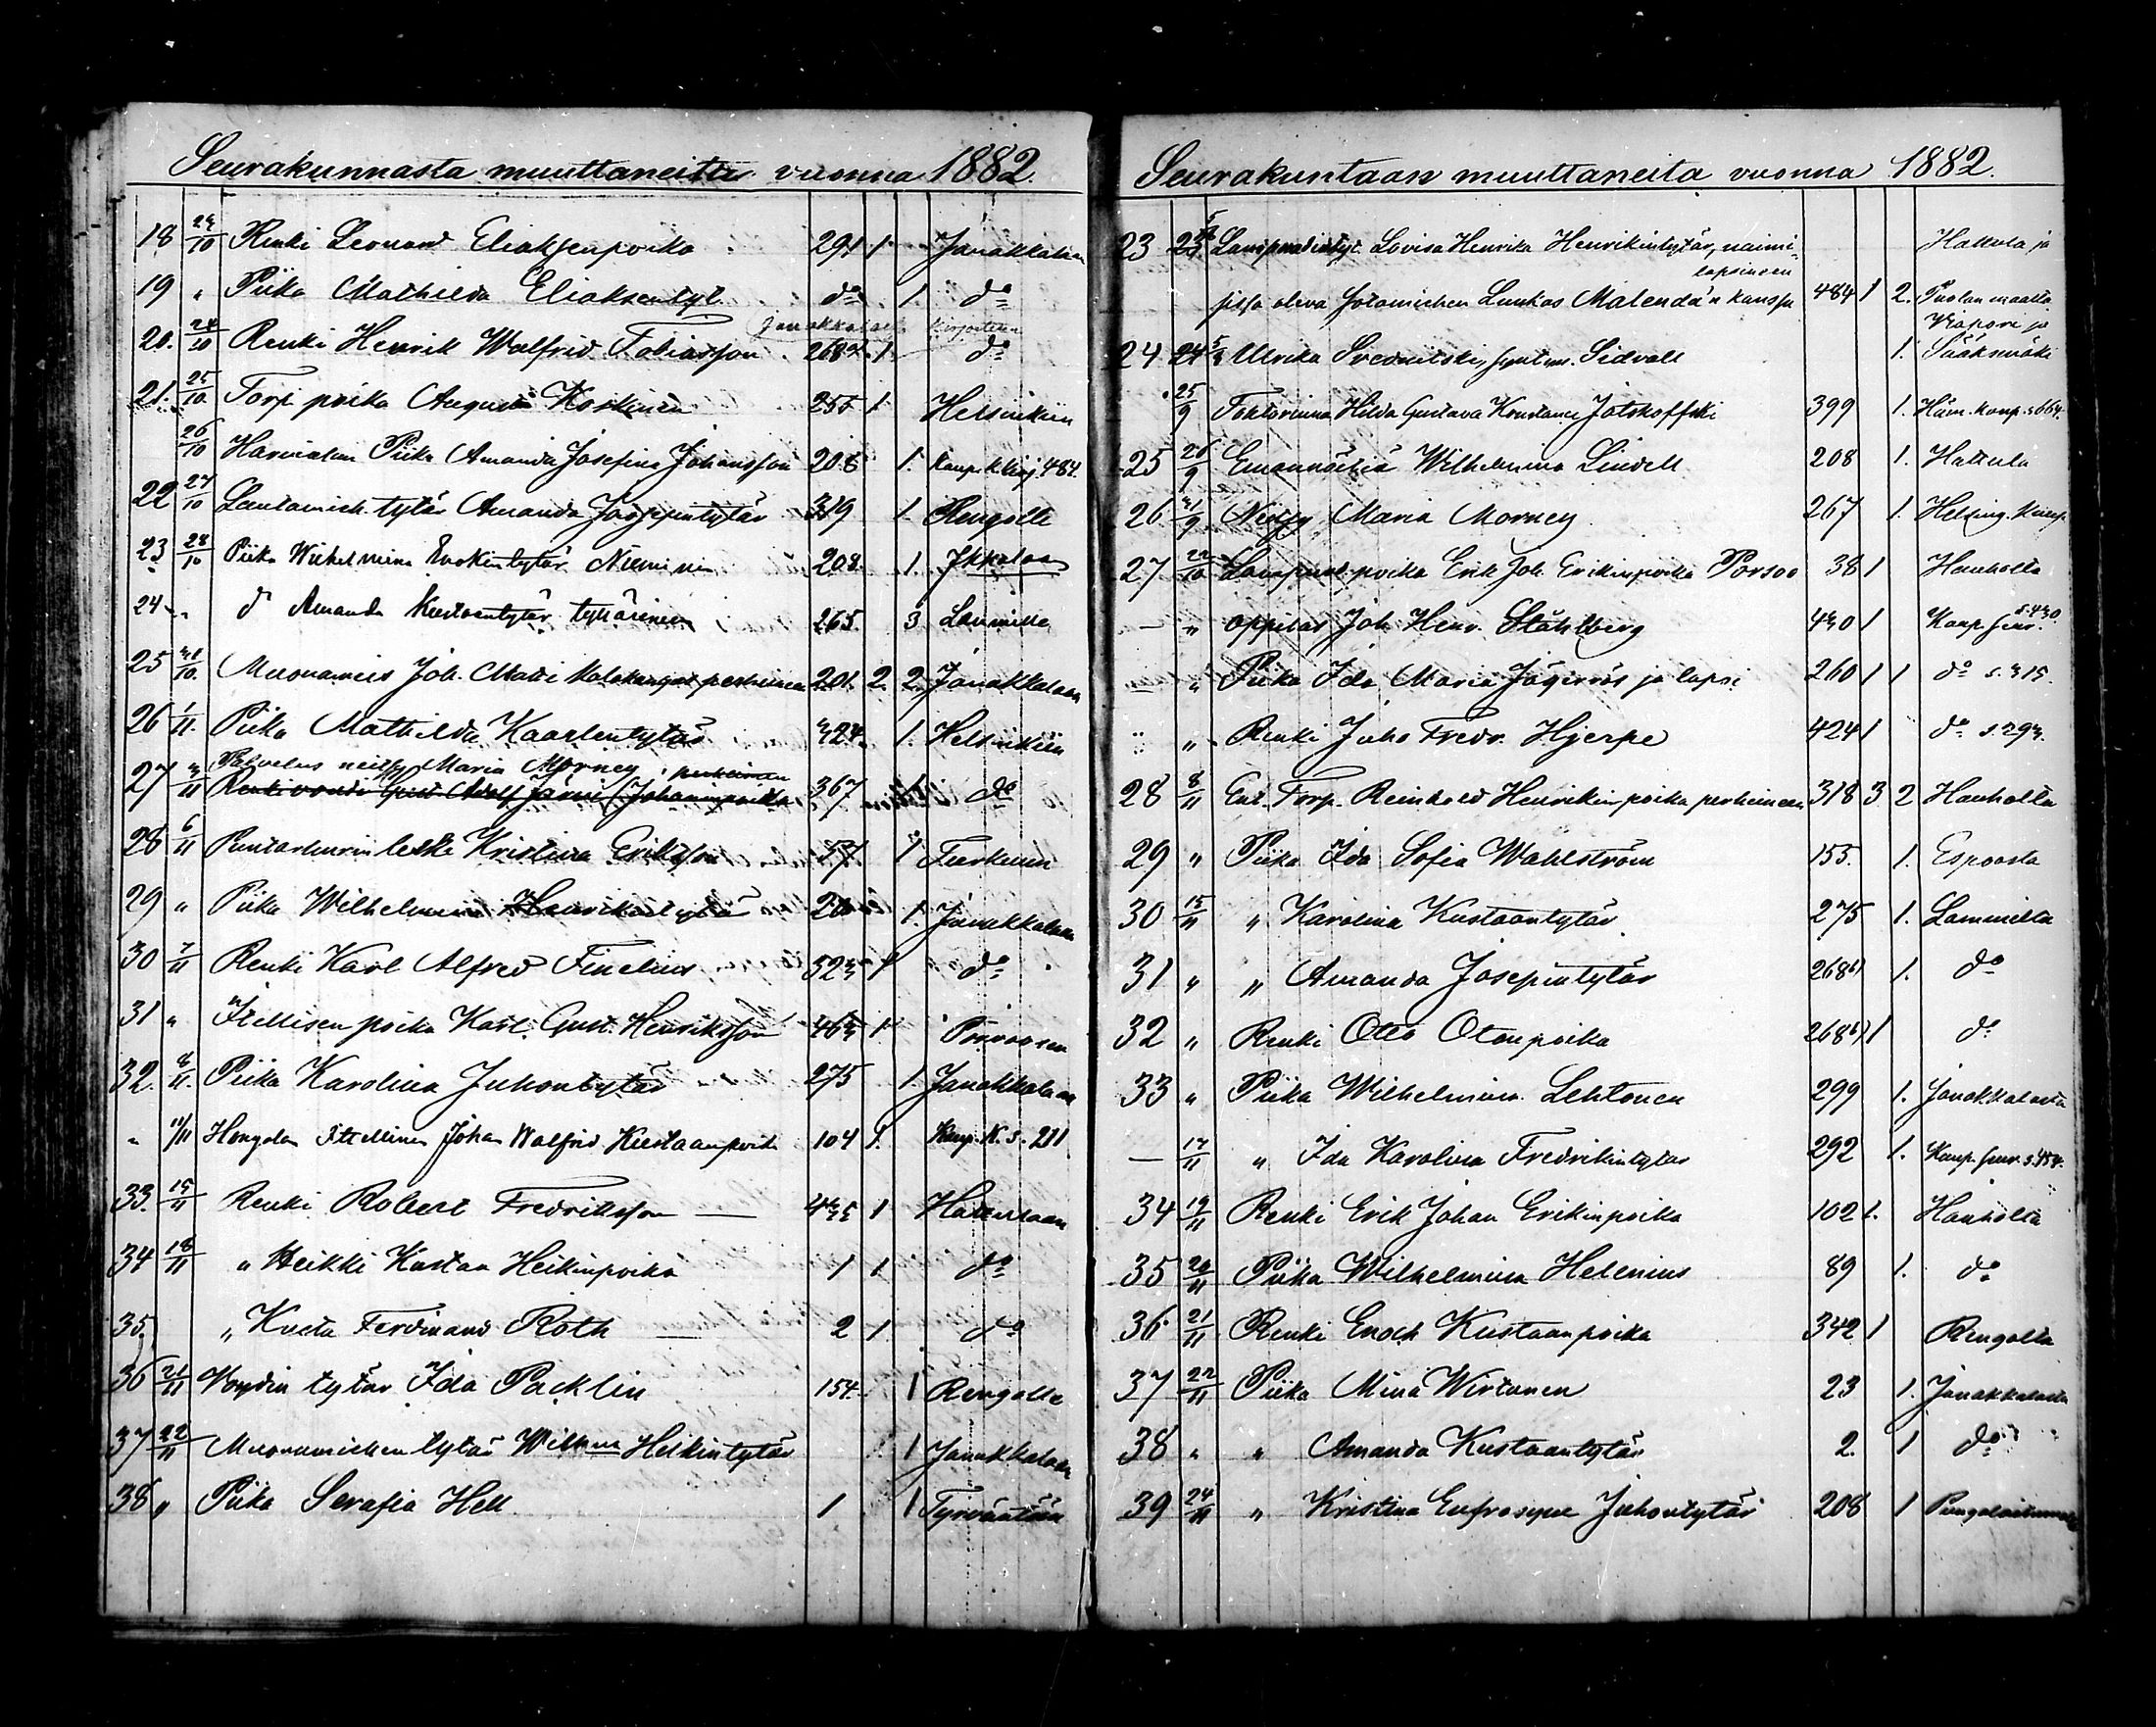 Seurakunnasta muuttaneita vuonna 1882.
18 29/10 Renki Leonard Eliaksenpoika 291 1 Janakkalaan
19 " Piika Mathilda Eliaksentyt. do 1. do
Janakkalaan kirjoitettu
20. 24/10 Renki Henrik Walfrid Tobiasson 268 1. do
21. 25/10 Torp. poika August Koskinen 255 1 Helsinkiin
26/10 Piika Amanda Josefina Johansson 208 1. Kaup. k. kirj. 484.
22 27/10 Lautamieh. tytär Amanda Josepintytär 319 1. Rengolle
23 28/10 Piika Wilhelmina Enokintytär Nieminen 208. 1. Ikkalaan
24 " do Amanda Kustaantytär tyttärineen 265. 3 Lammille
25 31/10. Muonamies Joh. Matti perheineen 201. 2. 2. Janakkalaan
26 1/11. Piika Mathilda Kaarlentytär 324. 1. Helsinkiin
Palvelus neitsy Maria Morney perheineen
27 3/11 Renkivouti Gust. Adolf Järvi (Johaninpoika 367 do
28 6/11 Puutarhurin leski Kristina Eriksson 1 Turkuun
29 " Piika Wilhelmina Henrikintytär 1. Janakkalaan
30 7/11 Renki Karl Alfred Finelius 323 1 do
31 " Itellisen poika Karl. Gust. Henriksson 463 1 Porvoosen
32. 8/11. Piika Karolina Juhontytär 275 1. Janakkalaan
" 11/11 Itsellinen Johan Walfrid Kustaanpoik. 104 1. Kaup. K. s. 211
33. 15/11 Renki Robert Fredriksson — 435 1 Hattulaan
34 18/11 " Heikki Kustaa Heikinpoika 1 1 do
35. " Kusta Ferdinand Roth — 2 1 do
36 21/11 Voudin tytär Ida Packlin 154. 1 Rengolle
37 22/11 Muonamiehen tytär Wilhna Heikintytär 1 Janakkalaan
38 " Piika Serafia Hell 1 1 Tyrväntöön
Seurakuntaan muuttaneita vuonna 1882.
23 Lovisa Henrika Henrikintytär, naimi- Hattula ja
lapsineen
sissa oleva sotamiehen Luukas Malenda'n kanssa 484 1 2. Puolan maalta
Viapori ja
24 Ulrika Srednitski, synt. Sidvall 1. Sääksmäki
25/9 Tohtorinna Hilda Gustava Konstance Jatskoffski 399 1. Häm. kaup. s. 664.
25 26/9 Emännöitsiä Wilhelmina Lindell 208 1. Hattula
26 Neitsy Maria Morney 267 1. Helsing. kaup.
27 22/10 Lamp. poika Erik Joh. Erikinpoika Porsoo 38 1 Hauholta
— " Oppilas Joh. Henr. Ståhlberg 430 1 Kaup. seur. s. 430.
— " Piika Ida Maria Jägerros ja lapsi 260 1 1 do s. 315.
" " Renki Juho Fredr. Hjerpe 424 1 do s. 293.
28 8/11 Ent. Torp. Reinhold Henrikinpoika perheineen 318 3 2 Hauholta
29 " Piika Ida Sofia Wahlström 155. 1. Espoosta
30 15/11 " Karolina Kustaantytär 275 1. Lammilta
31 " " Amanda Josepintytär 268b) 1. do
32 " Renki Otto Otonpoika 268b) 1 do
33 " Piika Wilhelmina Lehtonen 299 1. Janakkalasta
— 17/11 " Ida Karolina Fredrikintytär 292 1. Kaup. seur. s. 454.
34 19/11 Renki Erik Johan Erikinpoika 102 1. Hauholta
35 20/11 Piika Wilhelmina Helenius 89 1. do
36 21/11 Renki Enoch Kustaanpoika 342 1 Rengolta
37 22/11 Piika Mina Wirtanen 23 1. Janakkalasta
38 " " Amanda Kustaantytär 2. 1 do
39 24/11 " Kristina Eufrosyne Juhontytär 208 1